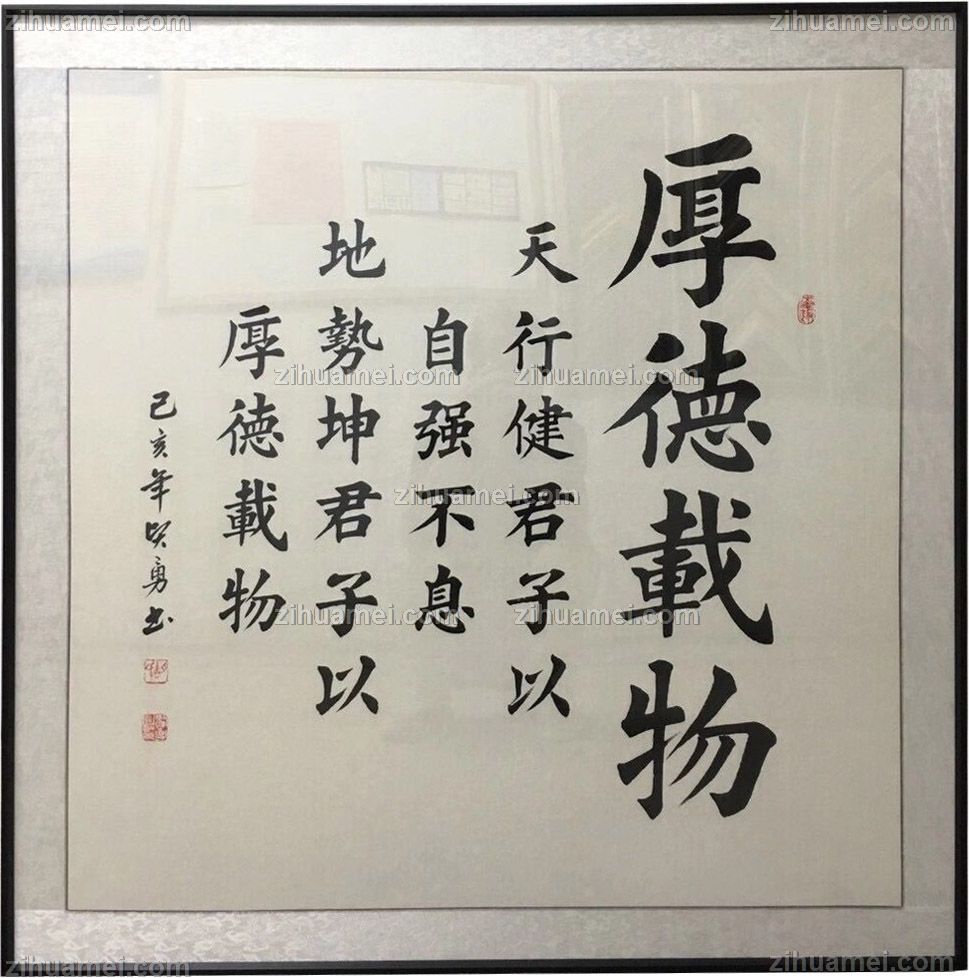 厚德載物
天行健君子以
自强不息
地勢坤君子以
厚德載物
己亥年賢勇书
zihuamei.com
zihuamei.com
zihuamei.com
zihuamei.com
zihuamei.com
zihuamei.com
zihuamei.com
zihuamei.com
zihuamei.com